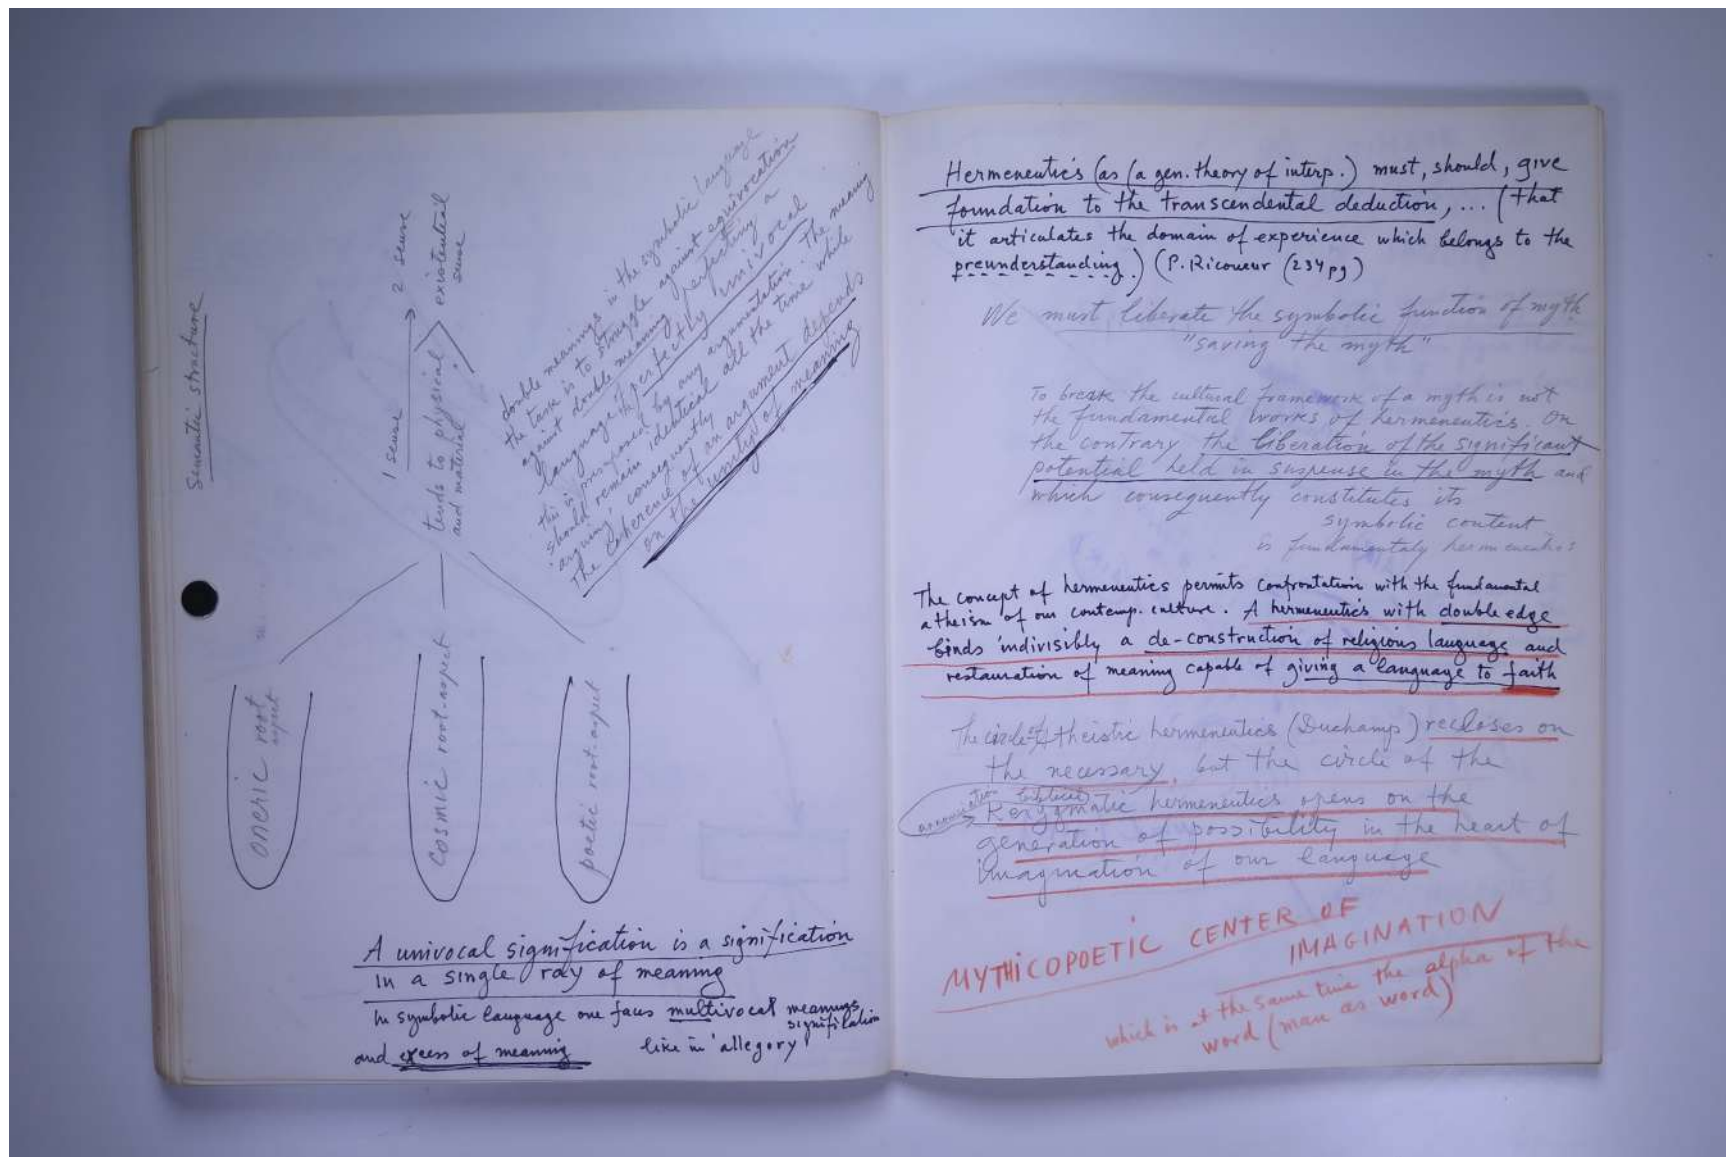 Semantic structure
1 sense → 2 sense
tends to physical
and material
existential
sense
oneric root
aspect
cosmic root-aspect
poetic root-aspect
double meanings in the symbolic language
the task is to struggle against equivocation
against double meaning, perfecting a
language of perfectly univocal
this is presuposed by any argumentation. The meaning
should remain identical all the time while
'arguing', consequently
the coherence of an argument depends
on the unity of meaning
A univocal signification is a signification
in a single ray of meaning
In symbolic language one faces multivocal meanings
signification
and excess of meaning like in 'allegory'
Hermeneutics (as (a gen. theory of interp.) must, should, give
foundation to the transcendental deduction, ... (that
it articulates the domain of experience which belongs to the
preunderstanding.) (P. Ricoueur (234 pg)
We must liberate the symbolic function of myth
"saving the myth"
To break the cultural framework of a myth is not
the fundamental works of hermeneutics. On
the contrary the liberation of the significant
potential held in suspense in the myth and
which consequently constitutes its
symbolic content
is fundamentaly hermeneutics
The concept of hermeneutics permits confrontation with the fundamental
atheism of our contemp. culture. A hermeneutics with double edge
binds indivisibly a de-construction of religious language and
restauration of meaning capable of giving a language to faith
The circle of theistic hermeneutics (Duchamp) recloses on
the necessary, but the circle of the
annonciation biblical
Kerygmatic hermeneutics opens on the
generation of possibility in the heart of
imagination of our language
MYTHICOPOETIC CENTER OF
IMAGINATION
which is at the same time the alpha of the
word (man as word)